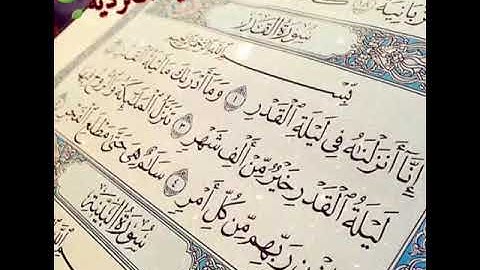 سُورَةُ القَدْرِ
بِسْمِ اللَّهِ الرَّحْمَٰنِ الرَّحِيمِ
إِنَّا أَنزَلْنَٰهُ فِى لَيْلَةِ ٱلْقَدْرِ ١ وَمَآ أَدْرَىٰكَ مَا لَيْلَةُ
لَيْلَةُ ٱلْقَدْرِ خَيْرٌ مِّنْ أَلْفِ شَهْرٍ ٣ تَنَزَّلُ ٱلْمَلَٰٓئِكَةُ وَٱلرُّوحُ فِيهَا
رَبِّهِم مِّن كُلِّ أَمْرٍ ٤ سَلَٰمٌ هِىَ حَتَّىٰ مَطْلَعِ ٱلْفَجْرِ
سُورَةُ البَيِّنَةِ